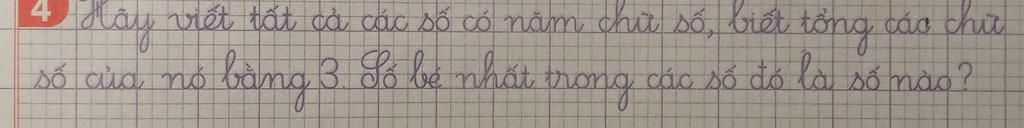 4 Hãy viết tất cả các số có năm chữ số, biết tổng các chữ
số của nó bằng 3. Số bé nhất trong các số đó là số nào?